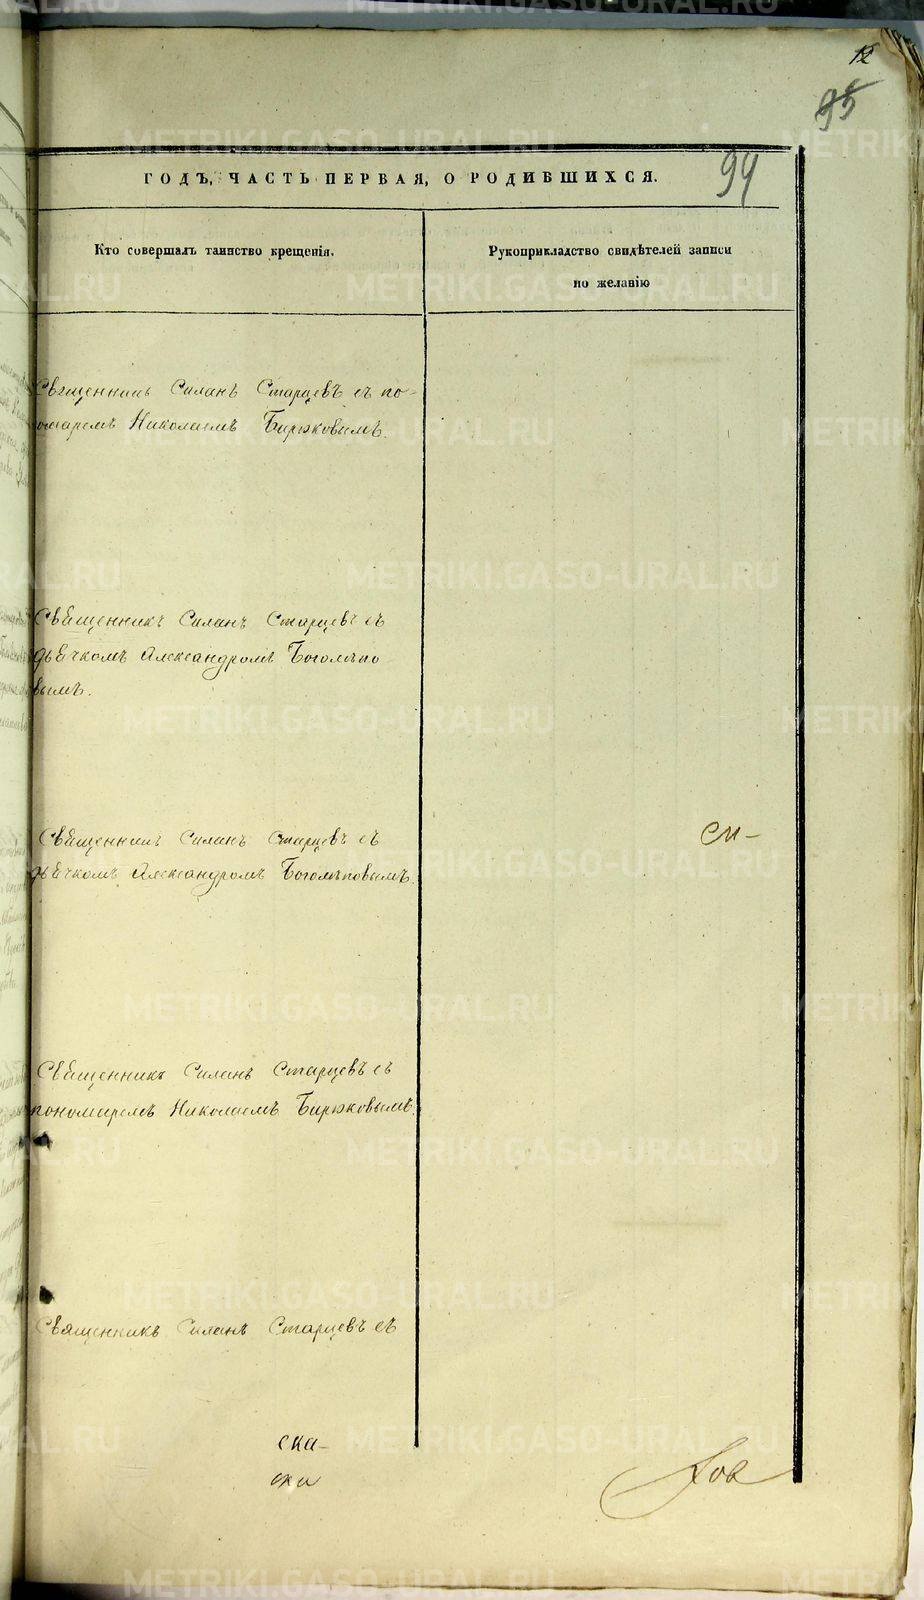 12
95
94
ГОДЪ, ЧАСТЬ ПЕРВАЯ, О РОДИВШИХСЯ.
Кто совершалъ таинство крещенія.
Рукоприкладство свидѣтелей записи
по желанію
Священникъ Силанъ Старцевъ съ по-
номаремъ Николаемъ Бирюковымъ.
Священникъ Силанъ Старцевъ съ
дьячкомъ Александромъ Боголѣпо
вымъ.
Священникъ Силанъ Старцевъ съ
дьячкомъ Александромъ Боголѣповымъ.
си-
Священникъ Силанъ Старцевъ съ
пономаремъ Николаемъ Бирюковымъ.
Священникъ Силанъ Старцевъ съ
ска-
ска
ков
METRIKI.GASO-URAL.RU